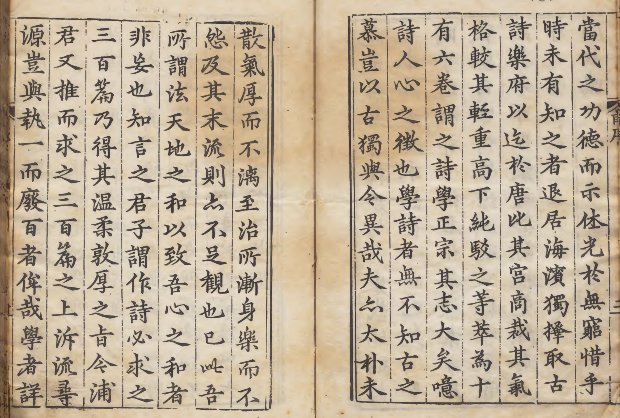 當代之功德而示休光於無窮惜乎
時未有知之者退居海濱獨擇取古
詩樂府以迄於唐比其宮商裁其氣
格較其輕重高下純駁之等萃為十
有六卷謂之詩學正宗其志大矣噫
詩人心之徵也學詩者無不知古之
慕豈以古獨與今異哉夫亦太朴未
散氣厚而不漓至治所漸身樂而不
怨及其末流則亦不足觀也已此吾
所謂法天地之和以致吾心之和者
非妄也知言之君子謂作詩必求之
三百篇乃得其温柔敦厚之旨今浦
君又推而求之三百篇之上泝流尋
源豈與執一而廢百者侔哉學者詳